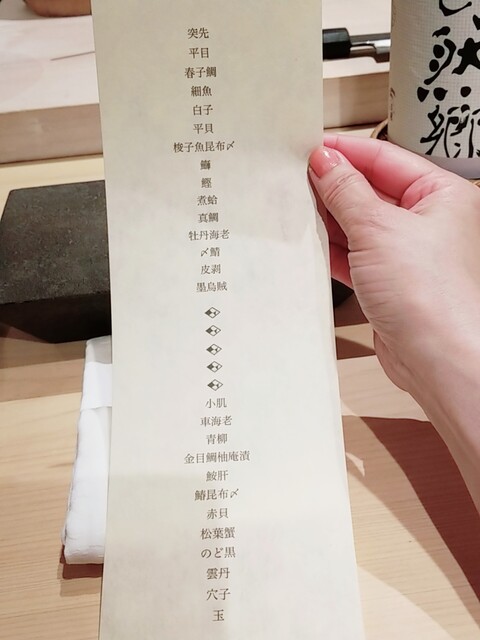 突先
平目
春子鯛
細魚
白子
平貝
梭子魚昆布〆
鰤
鰹
煮蛤
真鯛
牡丹海老
〆鯖
皮剥
墨烏賊
小肌
車海老
青柳
金目鯛柚庵漬
鮟肝
鰆昆布〆
赤貝
松葉蟹
のど黒
雲丹
穴子
玉